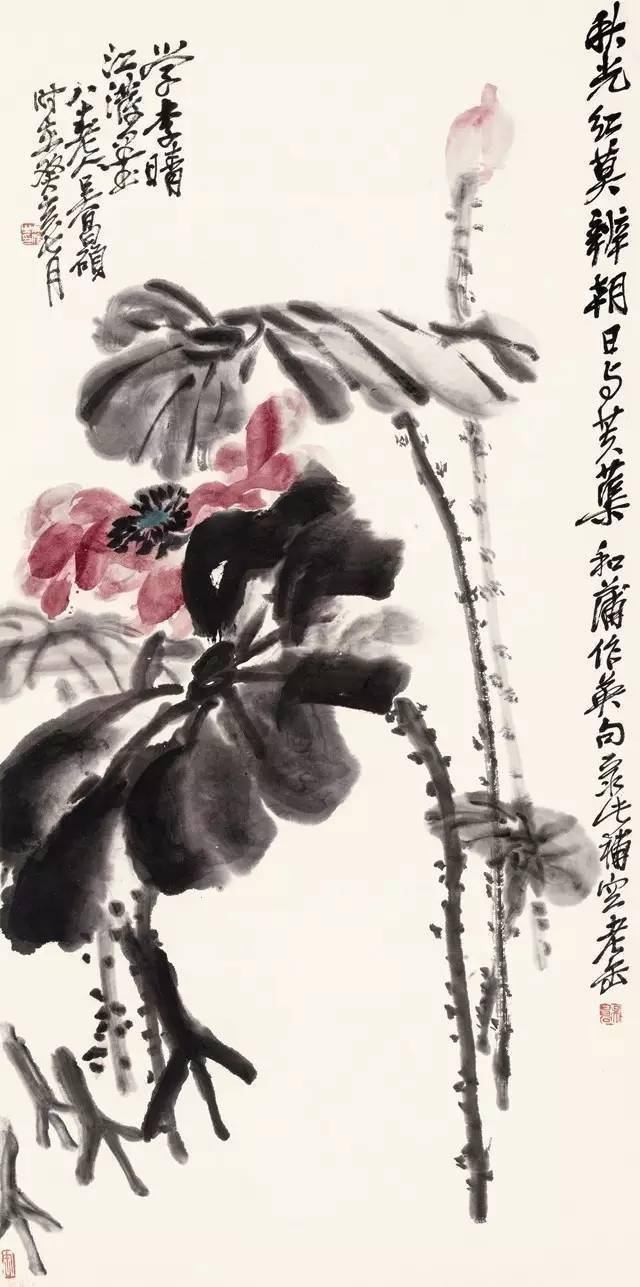 秋光红莫辨朝日与芙蕖和蒲作英句录此補空老缶
学李晴
江潑墨
八十老人吴昌碩
时在癸亥七月